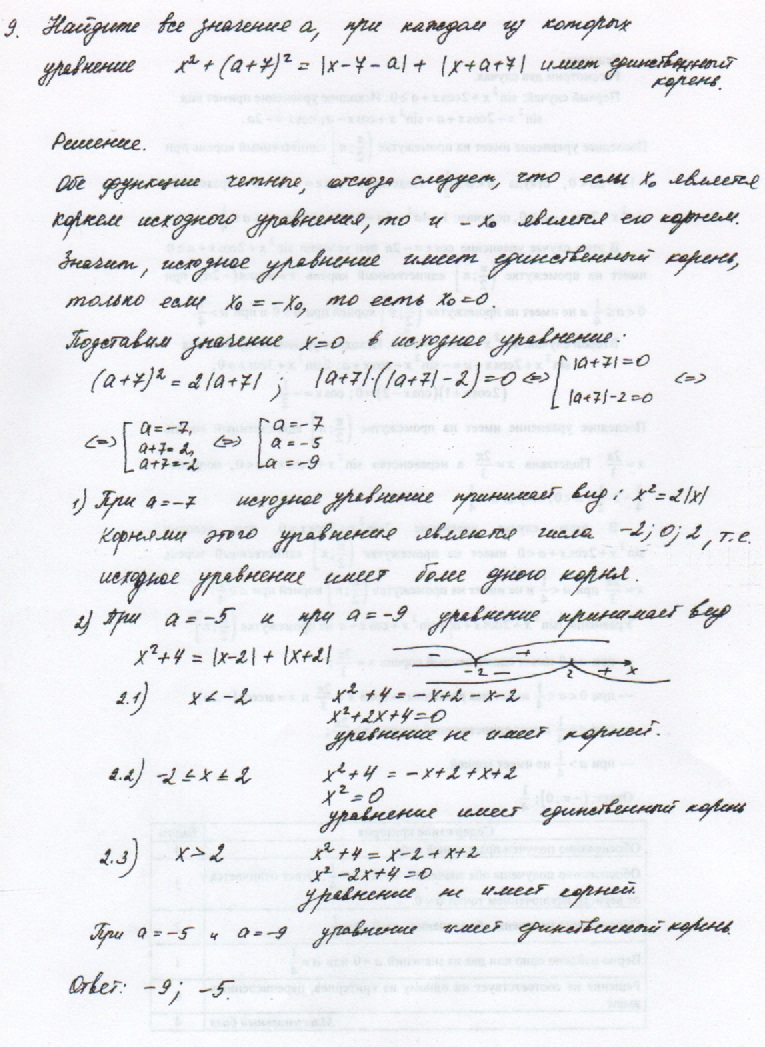 9. Найдите все значение a, при каждом из которых
уравнение x² + (a+7)² = |x-7-a| + |x+a+7| имеет единственный
корень.
Решение.
Обе функции четные, отсюда следует, что если x₀ является
корнем исходного уравнения, то и -x₀ является его корнем.
Значит, исходное уравнение имеет единственный корень,
только если x₀ = -x₀, то есть x₀=0.
Подставим значение x=0 в исходное уравнение:
(a+7)² = 2|a+7| ; |a+7|·(|a+7| - 2) = 0 <=> [ |a+7| = 0 |a+7|-2=0 <=>
<=> [ a=-7, a+7=2, a+7=-2 <=> [ a=-7 a=-5 a=-9
1) При a=-7 исходное уравнение принимает вид: x²=2|x|
Корнями этого уравнения являются числа -2; 0; 2, т.е.
исходное уравнение имеет более одного корня.
2) При a=-5 и при a=-9 уравнение принимает вид
x²+4 = |x-2| + |x+2| - -2 + - 2 + x
2.1) x < -2 x²+4 = -x+2 -x-2
x²+2x+4=0
уравнение не имеет корней.
2.2) -2 ≤ x ≤ 2 x²+4 = -x+2+x+2
x²=0
уравнение имеет единственный корень
2.3) x > 2 x²+4 = x-2+x+2
x²-2x+4=0
уравнение не имеет корней.
При a=-5 и a=-9 уравнение имеет единственный корень.
Ответ: -9; -5.